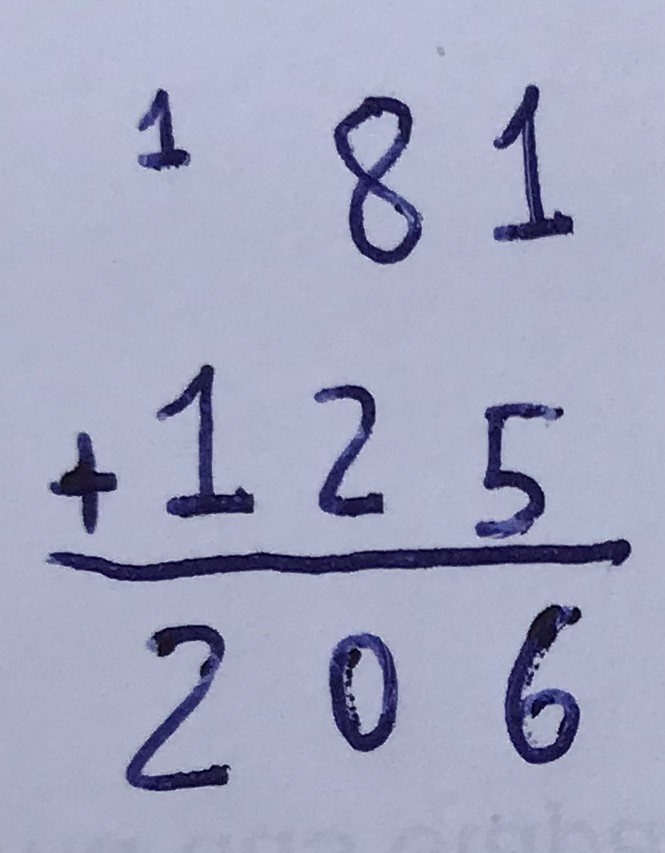 1 81
+125
206